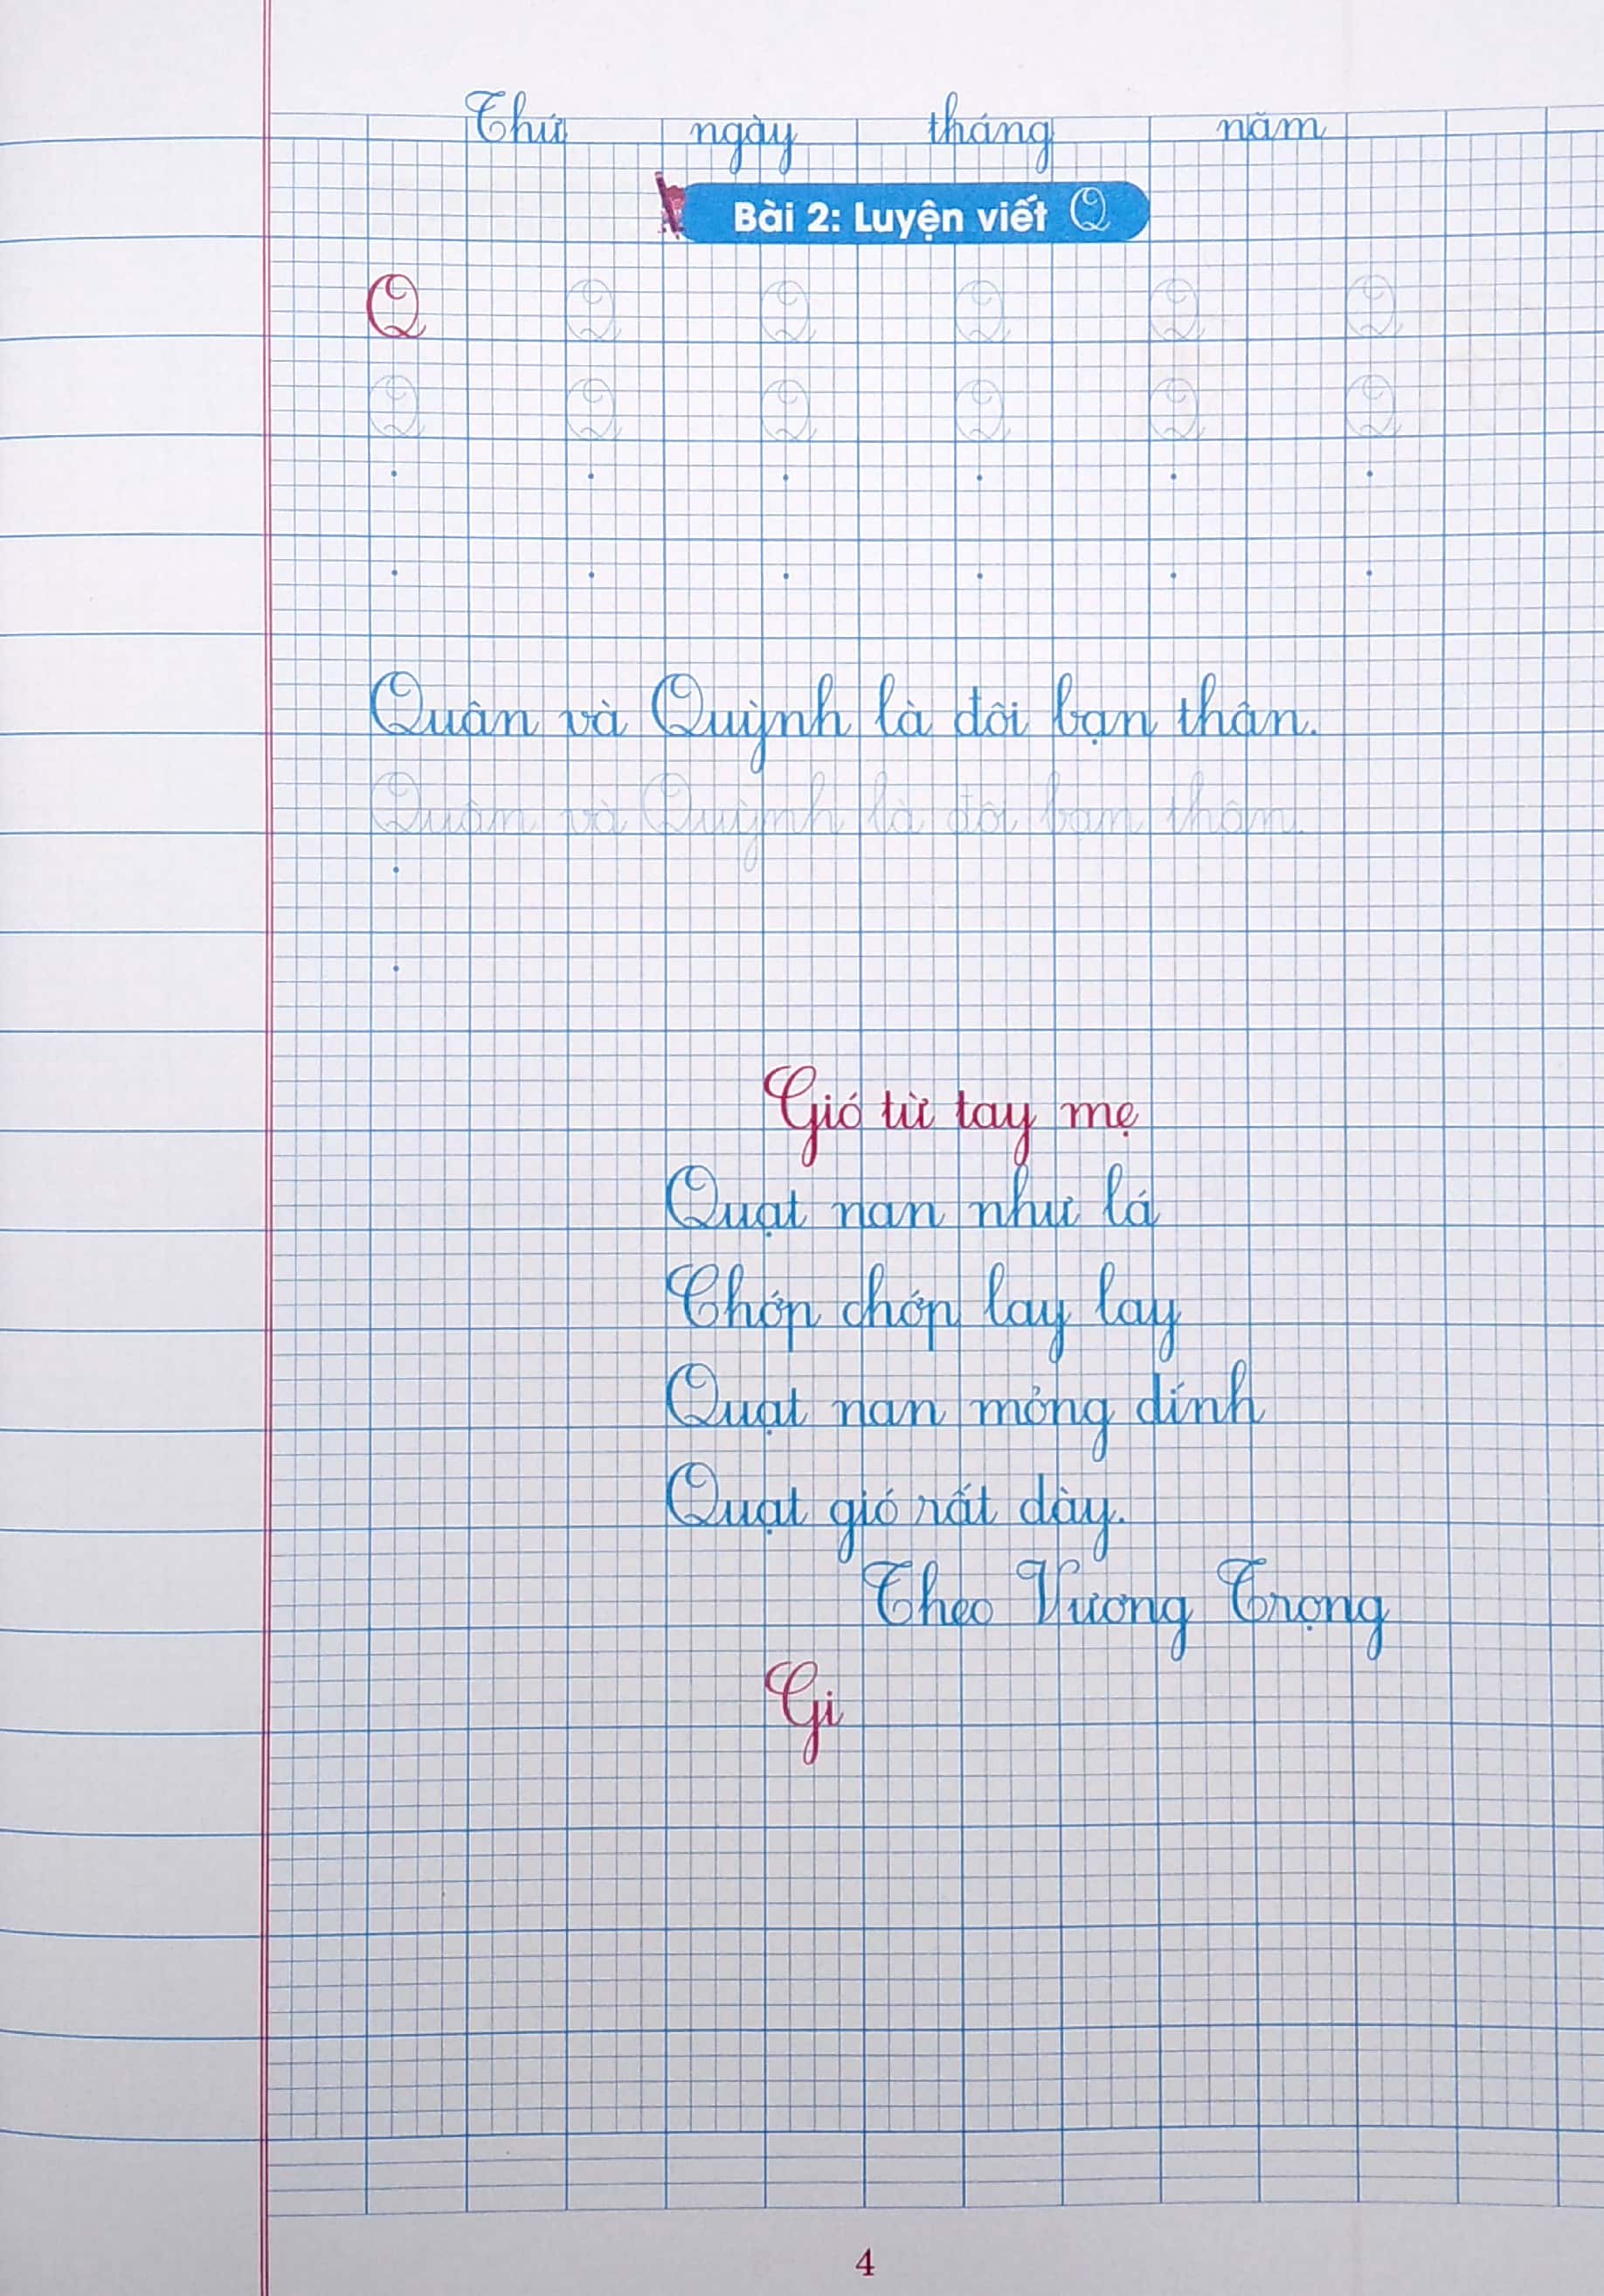 Thứ ngày tháng năm
Bài 2: Luyện viết Q
Q Q Q Q Q Q
Q Q Q Q Q Q
Quân và Quỳnh là đôi bạn thân.
Quân và Quỳnh là đôi bạn thân.
Gió từ tay mẹ
Quạt nan như lá
Chớp chớp lay lay
Quạt nan mỏng dính
Quạt gió rất dày.
Theo Vương Trọng
Gi
4